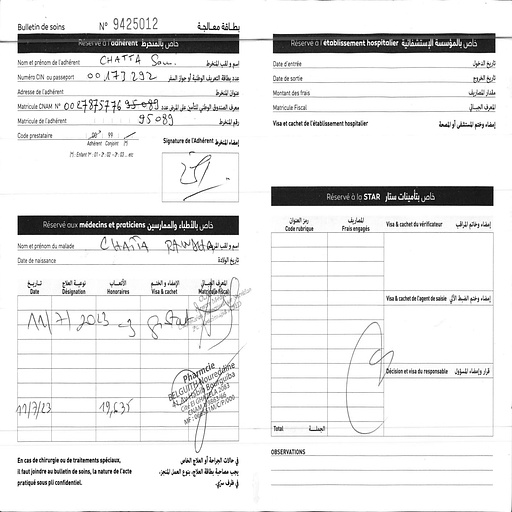 Bulletin de soins N° 9425012 بطاقة معالجة
Réservé à l'adhérent خاص بالمنخرط
Nom et prénom de l'adhérent CHATTA اسم و لقب المنخرط
Numéro CIN ou passeport 00173292 عدد بطاقة التعريف الوطنية أو جواز السفر
Adresse de l'adhérent عنوان المنخرط
Matricule CNAM N°
Matricule de l'adhérent 95089 رقم المنخرط
Code prestataire 00 99
Adhérent Conjoint
Signature de l'Adhérent إمضاء المنخرط
Réservé aux médecins et praticiens خاص بالأطباء والممارسين
Nom et prénom du malade CHATTA اسم و لقب المريض
Date de naissance تاريخ الولادة
تاريخ نوعية العلاج الأتعاب الإمضاء و الختم المعرف الجبائي
Date Désignation Honoraires Visa & cachet Matricule Fiscal
11/7/2023
Pharmcie
BELGUITH Noureddine
Av Habib Bourguiba
11/7/23 19,635
En cas de chirurgie ou de traitements spéciaux,
il faut joindre au bulletin de soins, la nature de l'acte
pratiqué sous pli confidentiel.
في حالات الجراحة أو العلاج الخاص
يجب مصاحبة بطاقة العلاج، بنوع العمل المنجز،
في ظرف سري.
Réservé à l'établissement hospitalier خاص بالمؤسسة الإستشفائية
Date d'entrée تاريخ الدخول
Date de sortie تاريخ الخروج
Montant des frais مقدار المصاريف
Matricule Fiscal المعرف الجبائي
Visa et cachet de l'établissement hospitalier إمضاء وختم المستشفى أو المصحة
Réservé à la STAR خاص بتأمينات ستار
رمز العنوان المصاريف
Code rubrique Frais engagés
Visa & cachet du vérificateur إمضاء وخاتم المراقب
Visa & cachet de l'agent de saisie
Décision et visa du responsable قرار وإمضاء المسؤول
Total الجملة
OBSERVATIONS